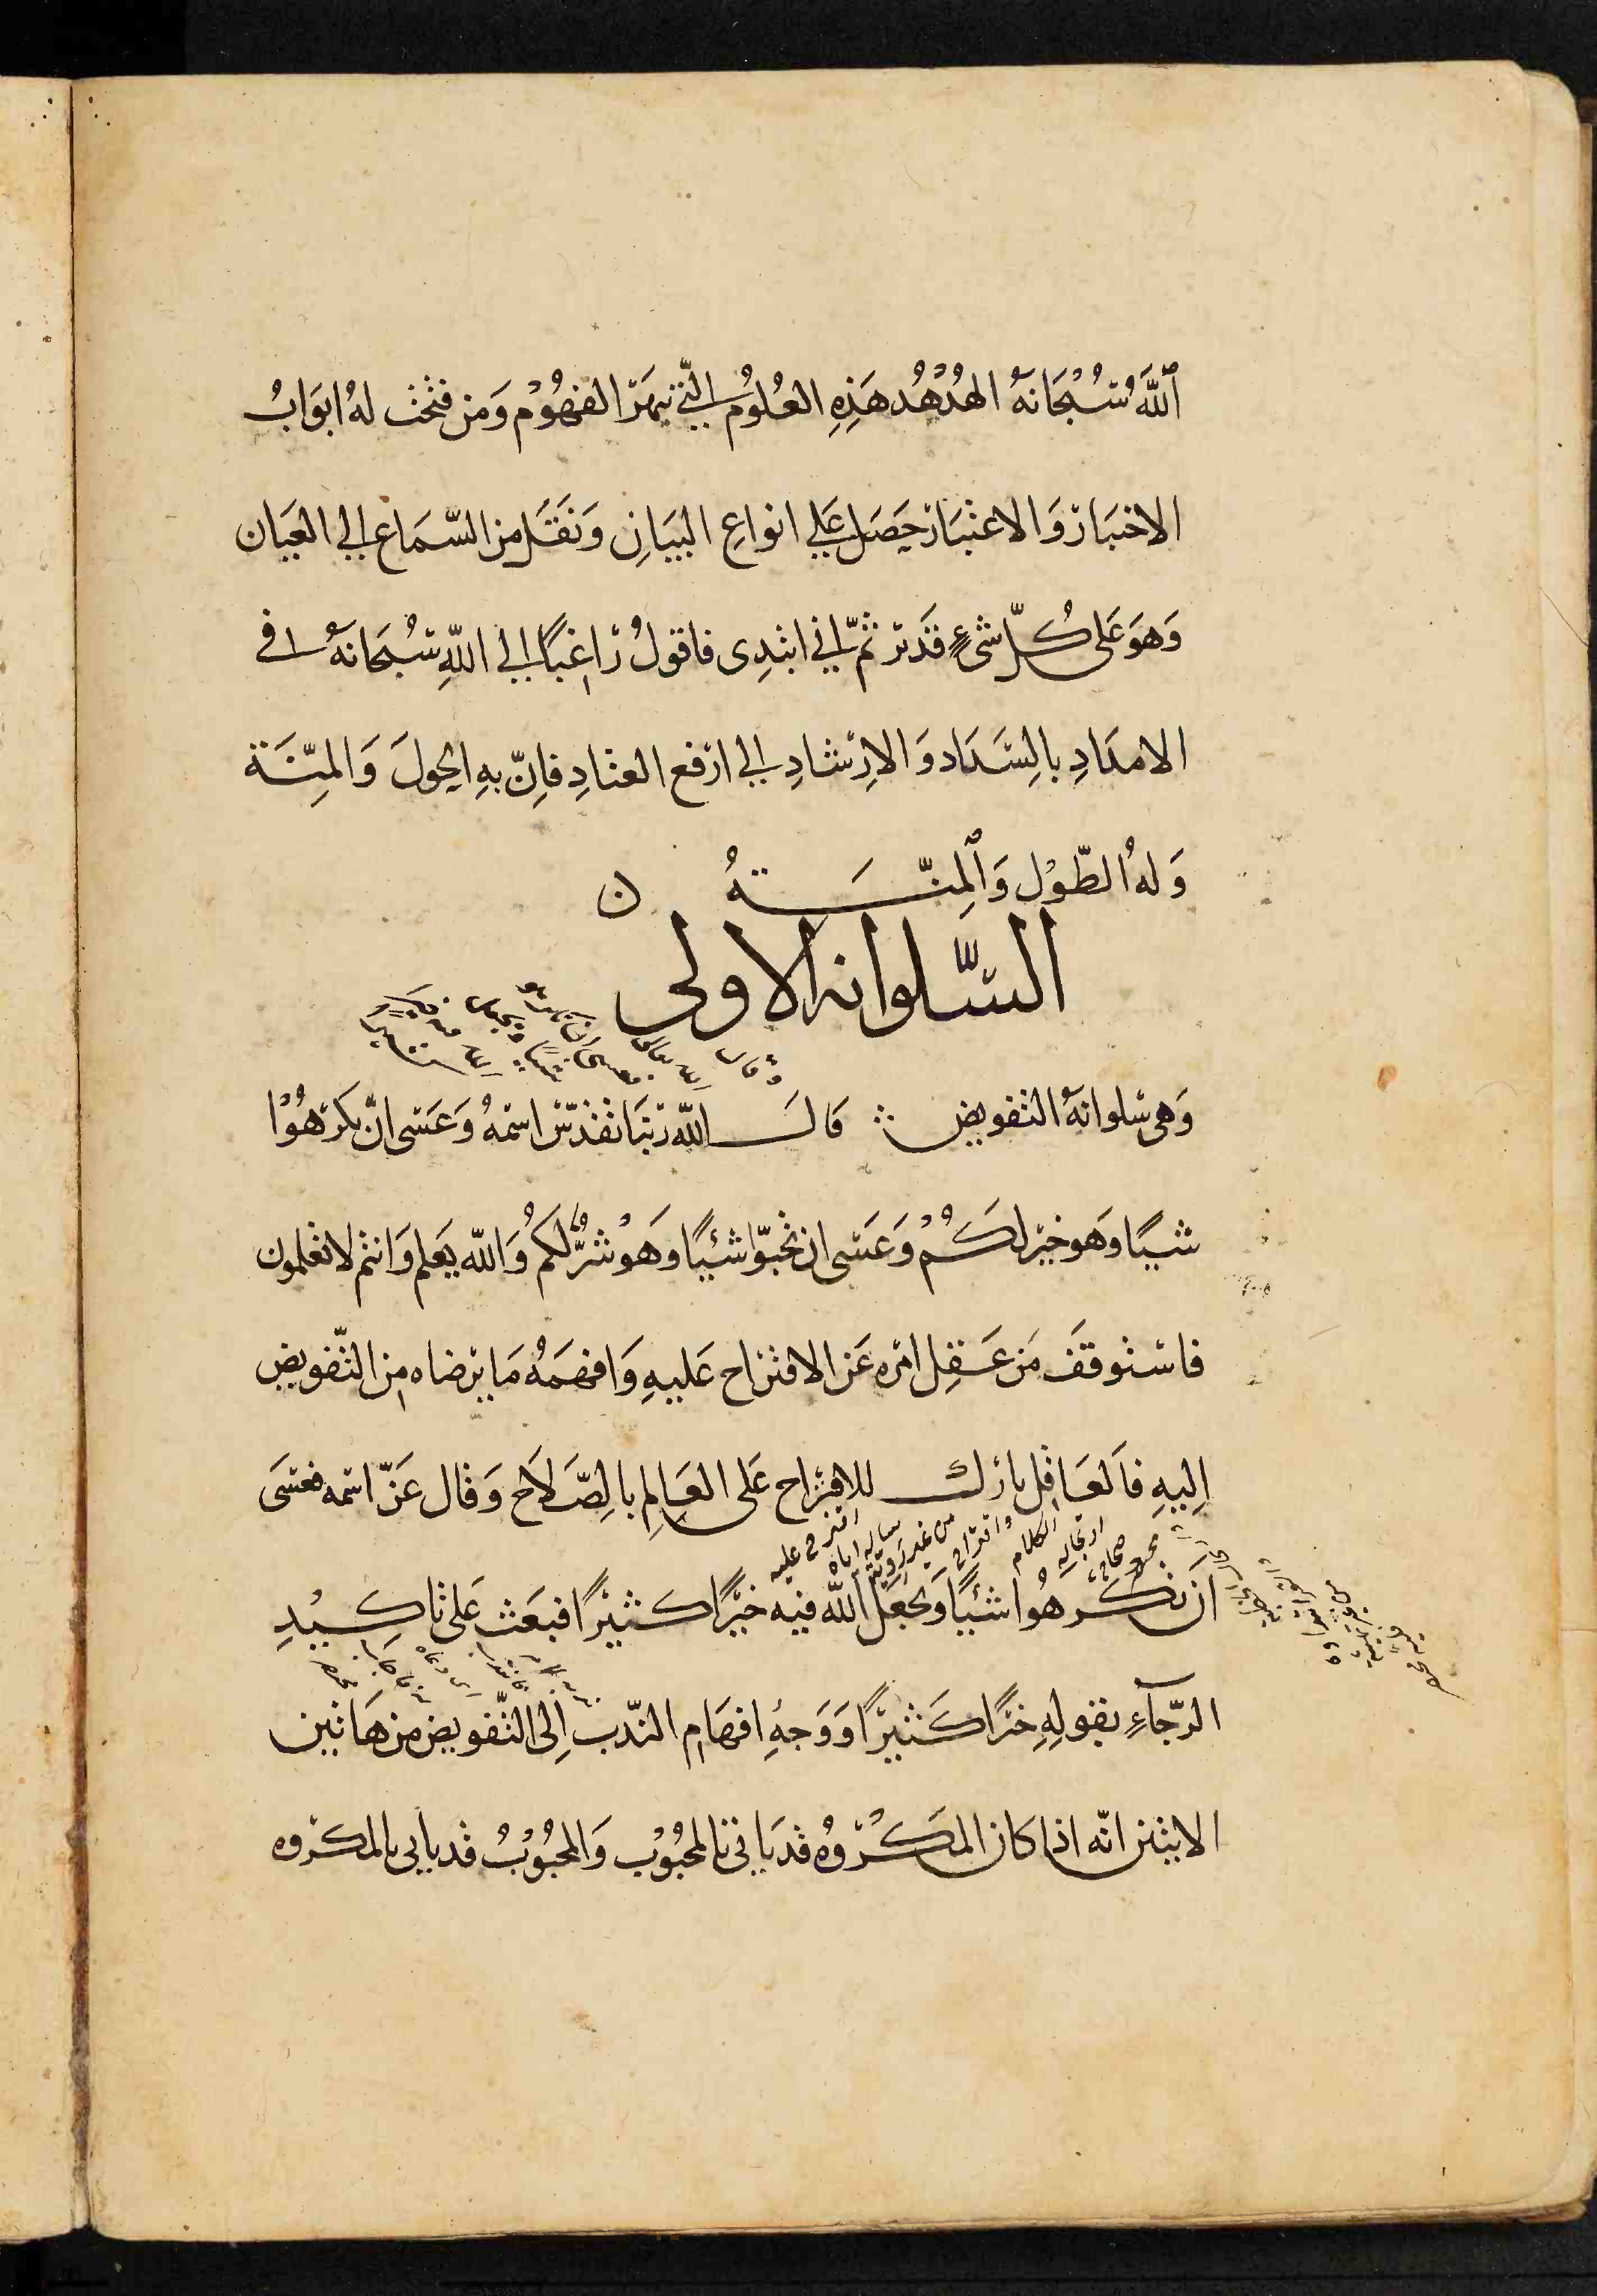 ٱللَّهُ سُبْحَانَهُ الهُدْهُد هَذِهِ العُلُومُ الّتي تبهَرُ الفهُوْم وَمن فتحت لهُ ابوَابُ
الاختبَار وَالاعتبَار حصَل عَلى انواعِ البيَانِ وَنقَل من السّمَاع الى العيَان
وَهوَ عَلى كُلّ شىءٍ قدَير ثمّ انى ابتدِى فاقولُ رَاغبًا الى اللّهِ سُبحَانهُ فى
الامدَادِ بالسَدَاد وَالاِرشادِ الى ارفع العتادِ فاِنّ بهِ الحولَ وَالمِنّة
وَلهُ الطّوْل وَٱلمِنّــــةُ ن
السّلوانه الاولى
وَهى سلوانهُ التفويض قالَ اللّه ربّنا تقدّس اسمهُ وَعَسَى ان تكرهُوْا
شيئًا وَهو خيْر لكُمْ وَعَسَى ان تحبّوا شئيًا وَهوْ شرٌّ لكمُ وَاللّه يَعلم وَانتم لا تعلمون
فاستوقفَ مَن عَقل امره عَن الاقتراح عَليهِ وَافهمَهُ مَا يرضاه مِن التّفويض
اِليهِ فالعَاقِل تارك للاِقتراح عَلى العَالِم بالِصّلاح وَقال عَزّ اسمه فعسَى
ان تكرهُوا شئيًا وَيجعَل اللّه فيه خيْرًا كثيرًا فبعَث عَلى تاكيْدِ
الرّجآءِ بقولِهِ خيرًا كثيرًا وَوَجهِ افهام الندّب اِلى التّفويض من هَاتين
الايتين انّه اذا كان المَكرُوْهُ قدْ يَاتى بالمحبُوْب وَالمحبُوْبُ قد ياتى بالمكروه